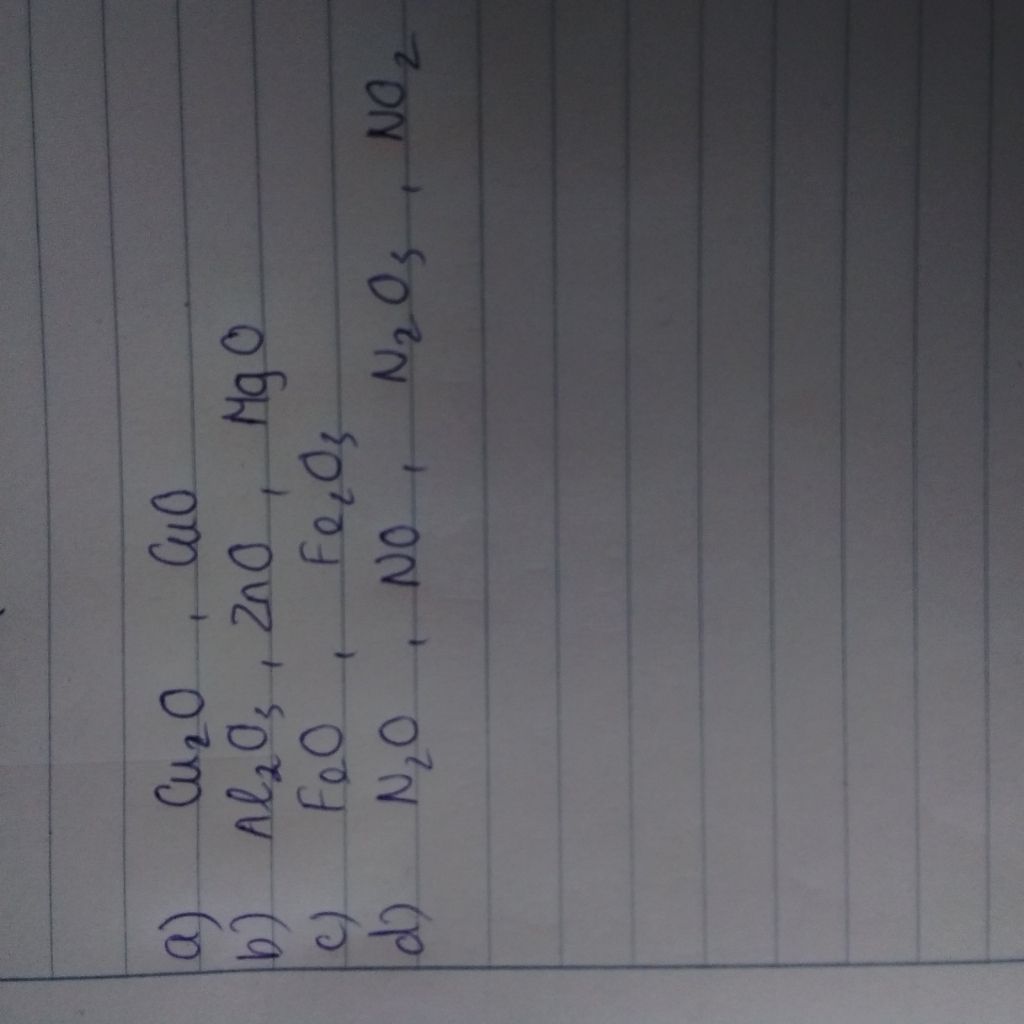 a) Cu₂O , CuO
b) Al₂O₃ , ZnO , MgO
c) FeO , Fe₂O₃
d) N₂O , NO , N₂O₃ , NO₂